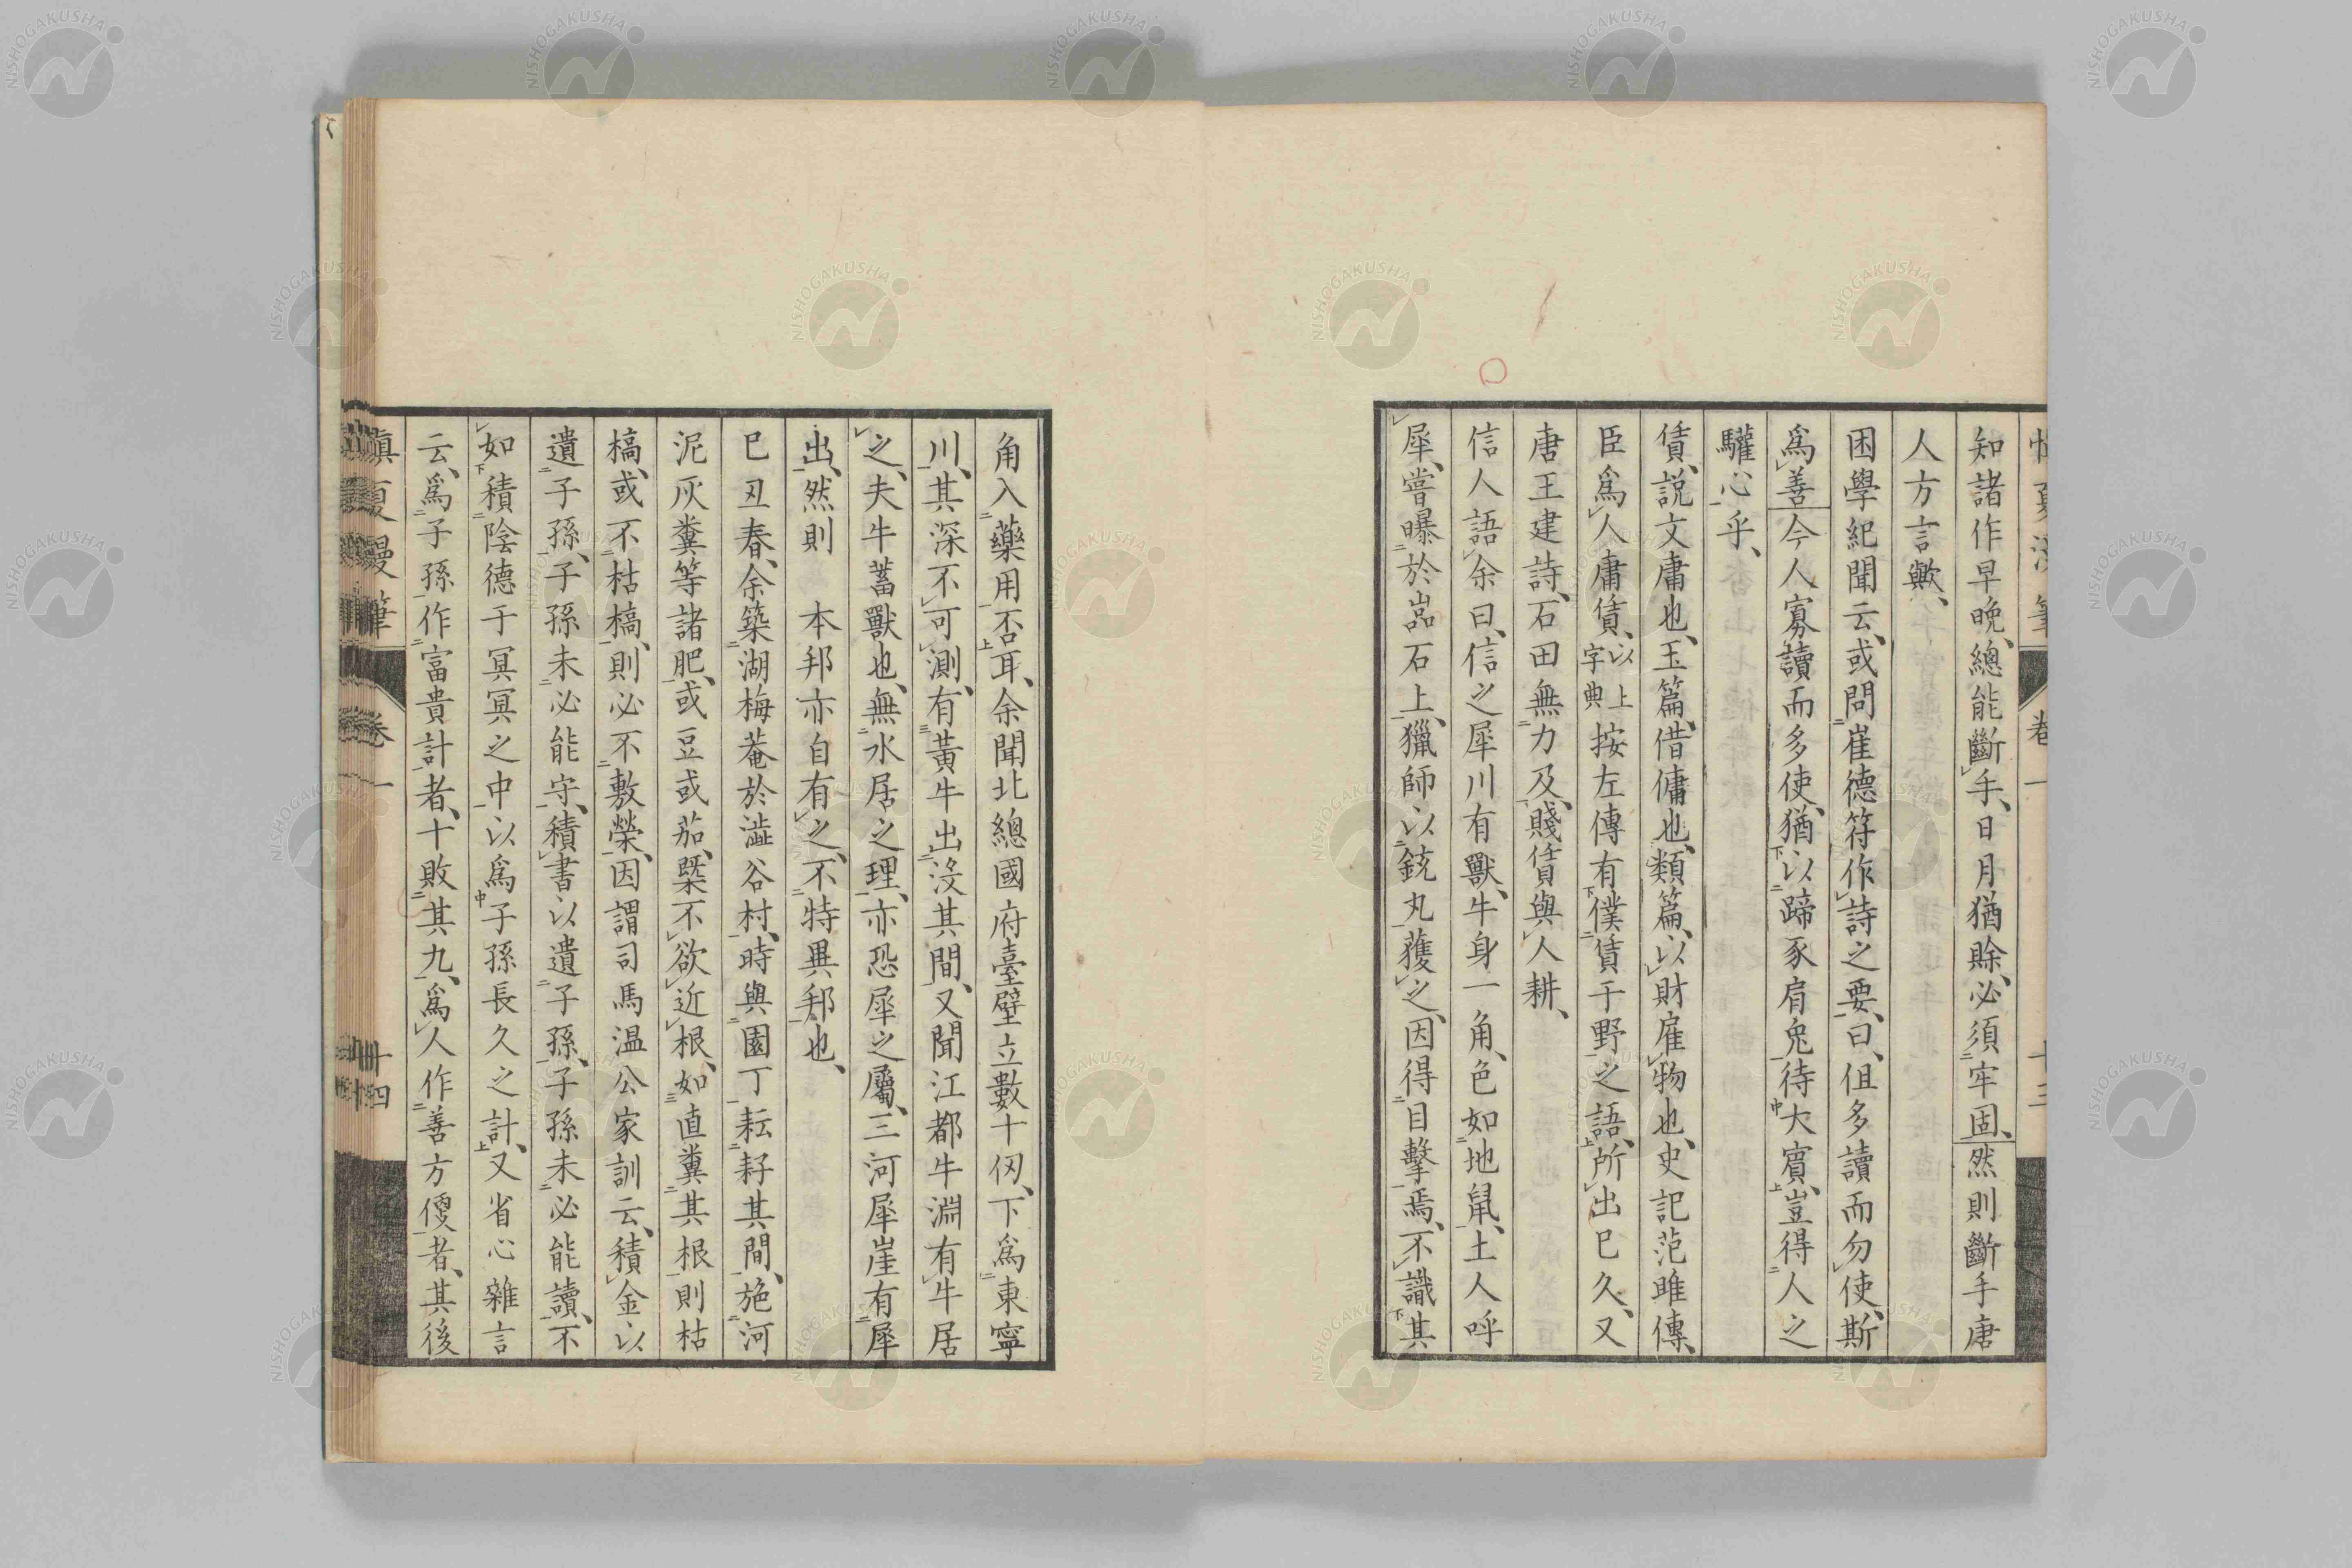 知諸作早晚、總能斷手、日月猶賖、必須牢固、然則斷手唐
人方言歟、
困學紀聞云、或問崔德符作詩之要、曰、但多讀而勿使、斯
爲善今人寡讀而多使、猶以蹄豕肩兔待大賓、豈得人之
驩心乎、
賃、說文庸也、玉篇、借傭也、類篇、以財雇物也、史記范雎傳、
臣爲人庸賃、以上字典按左傳有僕賃于野之語、所出已久、又
唐王建詩、石田無力及、賤賃與人耕、
信人語余曰、信之犀川有獸、牛身一角、色如地鼠、土人呼
犀、嘗曝於嵓石上、獵師以銃丸獲之、因得目擊焉、不識其
角入藥用否耳、余聞北總國府臺壁立數十仞、下爲東寧
川、其深不可測、有黃牛出沒其間、又聞江都牛淵有牛居
之、夫牛蓄獸也、無水居之理、亦恐犀之屬、三河犀崖有犀
出、然則 本邦亦自有之、不特異邦也、
已丑春、余築湖梅菴於澁谷村、時與園丁耘耔其間、施河
泥灰糞等諸肥、或豆或茄、槩不欲近根、如直糞其根則枯
槁、或不枯槁、則必不敷榮、因謂司馬温公家訓云、積金以
遺子孫、子孫未必能守、積書以遺子孫、子孫未必能讀、不
如積陰德于冥冥之中以爲子孫長久之計、又省心雜言
云、爲子孫作富貴計者、十敗其九、爲人作善方優者、其後
愼夏漫筆 卷一 十四